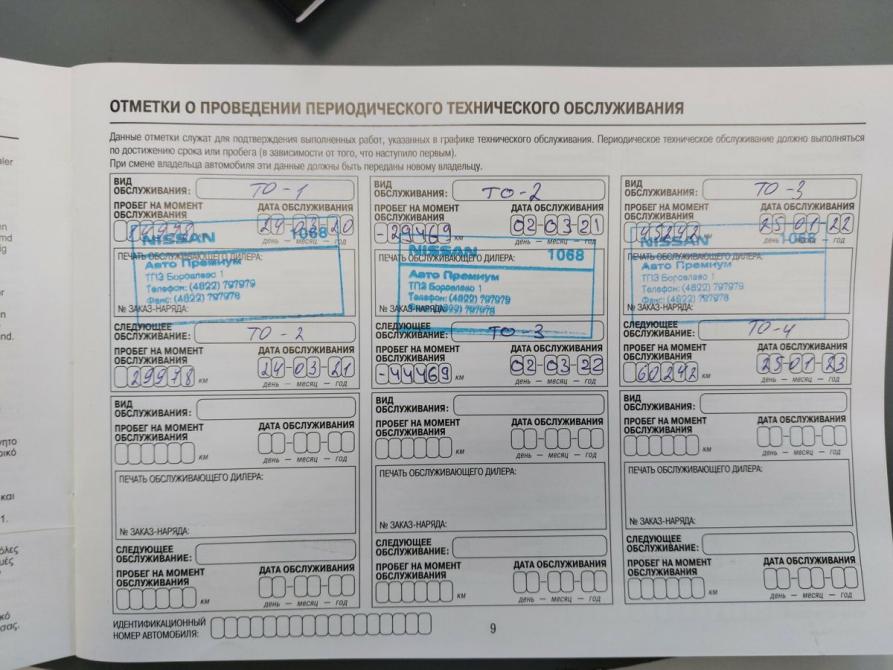 ОТМЕТКИ О ПРОВЕДЕНИИ ПЕРИОДИЧЕСКОГО ТЕХНИЧЕСКОГО ОБСЛУЖИВАНИЯ
Данные отметки служат для подтверждения выполненных работ, указанных в графике технического обслуживания. Периодическое техническое обслуживание должно выполняться
по достижению срока или пробега (в зависимости от того, что наступило первым).
При смене владельца автомобиля эти данные должны быть переданы новому владельцу.
ВИД
ОБСЛУЖИВАНИЯ: ТО-1
ПРОБЕГ НА МОМЕНТ
ОБСЛУЖИВАНИЯ
ДАТА ОБСЛУЖИВАНИЯ
24-03-20
день — месяц — год
NISSAN 1068
ПЕЧАТЬ ОБСЛУЖИВАЮЩЕГО ДИЛЕРА:
Авто Премиум
ТПЗ Боровлево 1
Телефон: (4822) 797979
Факс: (4822) 797978
№ ЗАКАЗ-НАРЯДА:
СЛЕДУЮЩЕЕ
ОБСЛУЖИВАНИЕ: ТО-2
ПРОБЕГ НА МОМЕНТ
ОБСЛУЖИВАНИЯ
29978 км
ДАТА ОБСЛУЖИВАНИЯ
24-03-21
день — месяц — год
ВИД
ОБСЛУЖИВАНИЯ: ТО-2
ПРОБЕГ НА МОМЕНТ
ОБСЛУЖИВАНИЯ
29469 км
ДАТА ОБСЛУЖИВАНИЯ
02-03-21
день — месяц — год
NISSAN 1068
ПЕЧАТЬ ОБСЛУЖИВАЮЩЕГО ДИЛЕРА:
Авто Премиум
ТПЗ Боровлево 1
Телефон: (4822) 797979
Факс: (4822) 797978
№ ЗАКАЗ-НАРЯДА:
СЛЕДУЮЩЕЕ
ОБСЛУЖИВАНИЕ: ТО-3
ПРОБЕГ НА МОМЕНТ
ОБСЛУЖИВАНИЯ
-44469 км
ДАТА ОБСЛУЖИВАНИЯ
02-03-22
день — месяц — год
ВИД
ОБСЛУЖИВАНИЯ: ТО-3
ПРОБЕГ НА МОМЕНТ
ОБСЛУЖИВАНИЯ
45242
ДАТА ОБСЛУЖИВАНИЯ
25-01-22
день — месяц — год
NISSAN 1068
ПЕЧАТЬ ОБСЛУЖИВАЮЩЕГО ДИЛЕРА:
Авто Премиум
ТПЗ Боровлево 1
Телефон: (4822) 797979
Факс: (4822) 797978
№ ЗАКАЗ-НАРЯДА:
СЛЕДУЮЩЕЕ
ОБСЛУЖИВАНИЕ: ТО-4
ПРОБЕГ НА МОМЕНТ
ОБСЛУЖИВАНИЯ
60242 км
ДАТА ОБСЛУЖИВАНИЯ
25-01-23
день — месяц — год
ВИД
ОБСЛУЖИВАНИЯ:
ПРОБЕГ НА МОМЕНТ
ОБСЛУЖИВАНИЯ
км
ДАТА ОБСЛУЖИВАНИЯ
день — месяц — год
ПЕЧАТЬ ОБСЛУЖИВАЮЩЕГО ДИЛЕРА:
№ ЗАКАЗ-НАРЯДА:
СЛЕДУЮЩЕЕ
ОБСЛУЖИВАНИЕ:
ПРОБЕГ НА МОМЕНТ
ОБСЛУЖИВАНИЯ
км
ДАТА ОБСЛУЖИВАНИЯ
день — месяц — год
ВИД
ОБСЛУЖИВАНИЯ:
ПРОБЕГ НА МОМЕНТ
ОБСЛУЖИВАНИЯ
км
ДАТА ОБСЛУЖИВАНИЯ
день — месяц — год
ПЕЧАТЬ ОБСЛУЖИВАЮЩЕГО ДИЛЕРА:
№ ЗАКАЗ-НАРЯДА:
СЛЕДУЮЩЕЕ
ОБСЛУЖИВАНИЕ:
ПРОБЕГ НА МОМЕНТ
ОБСЛУЖИВАНИЯ
км
ДАТА ОБСЛУЖИВАНИЯ
день — месяц — год
ВИД
ОБСЛУЖИВАНИЯ:
ПРОБЕГ НА МОМЕНТ
ОБСЛУЖИВАНИЯ
км
ДАТА ОБСЛУЖИВАНИЯ
день — месяц — год
ПЕЧАТЬ ОБСЛУЖИВАЮЩЕГО ДИЛЕРА:
№ ЗАКАЗ-НАРЯДА:
СЛЕДУЮЩЕЕ
ОБСЛУЖИВАНИЕ:
ПРОБЕГ НА МОМЕНТ
ОБСЛУЖИВАНИЯ
км
ДАТА ОБСЛУЖИВАНИЯ
день — месяц — год
ИДЕНТИФИКАЦИОННЫЙ
НОМЕР АВТОМОБИЛЯ:
9